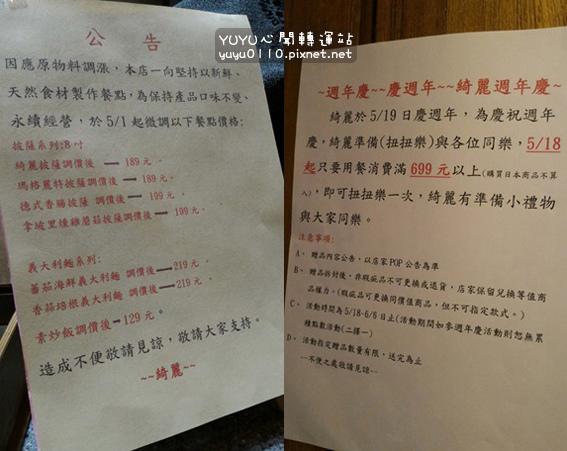 YUYU心閒轉運站
yuyu0110.pixnet.net
公 告
因應原物料調漲，本店一向堅持以新鮮、
天然食材製作餐點，為保持產品口味不變、
永續經營，於 5/1 起微調以下餐點價格:
披薩系列:8 吋
綺麗披薩調價後 — 189 元。
瑪格麗特披薩調價後—189 元。
德式香腸披薩 調價後 — 199 元。
拿坡里燻雞蘑菇披薩調價後—199 元。
義大利麵系列:
蕃茄海鮮義大利麵 調價後—219 元。
香菇培根義大利麵 調價後—219 元。
素炒飯調價後—129 元。
造成不便敬請見諒，敬請大家支持。
~~綺麗~~
~週年慶~~慶週年~~綺麗週年慶~
綺麗於 5/19 日慶週年，為慶祝週年
慶，綺麗準備(扭扭樂)與各位同樂，5/18
起只要用餐消費滿 699 元以上(購買日本商品不算
入)，即可扭扭樂一次，綺麗有準備小禮物
與大家同樂。
注意事項:
A、 贈品內容公告，以店家 POP 公告為準
B、 贈品拆封後，非瑕疵品不可更換或退貨，店家保留兌換等值商
品權力。(瑕疵品可更換同價值商品，但不可指定款式。)
C、 活動時間為 5/18-6/6 日止(活動期間如參週年慶活動則恕無累
積點數活動(二擇一)
D、 活動指定贈品數量有限，送完為止
---不便之處敬請見諒---